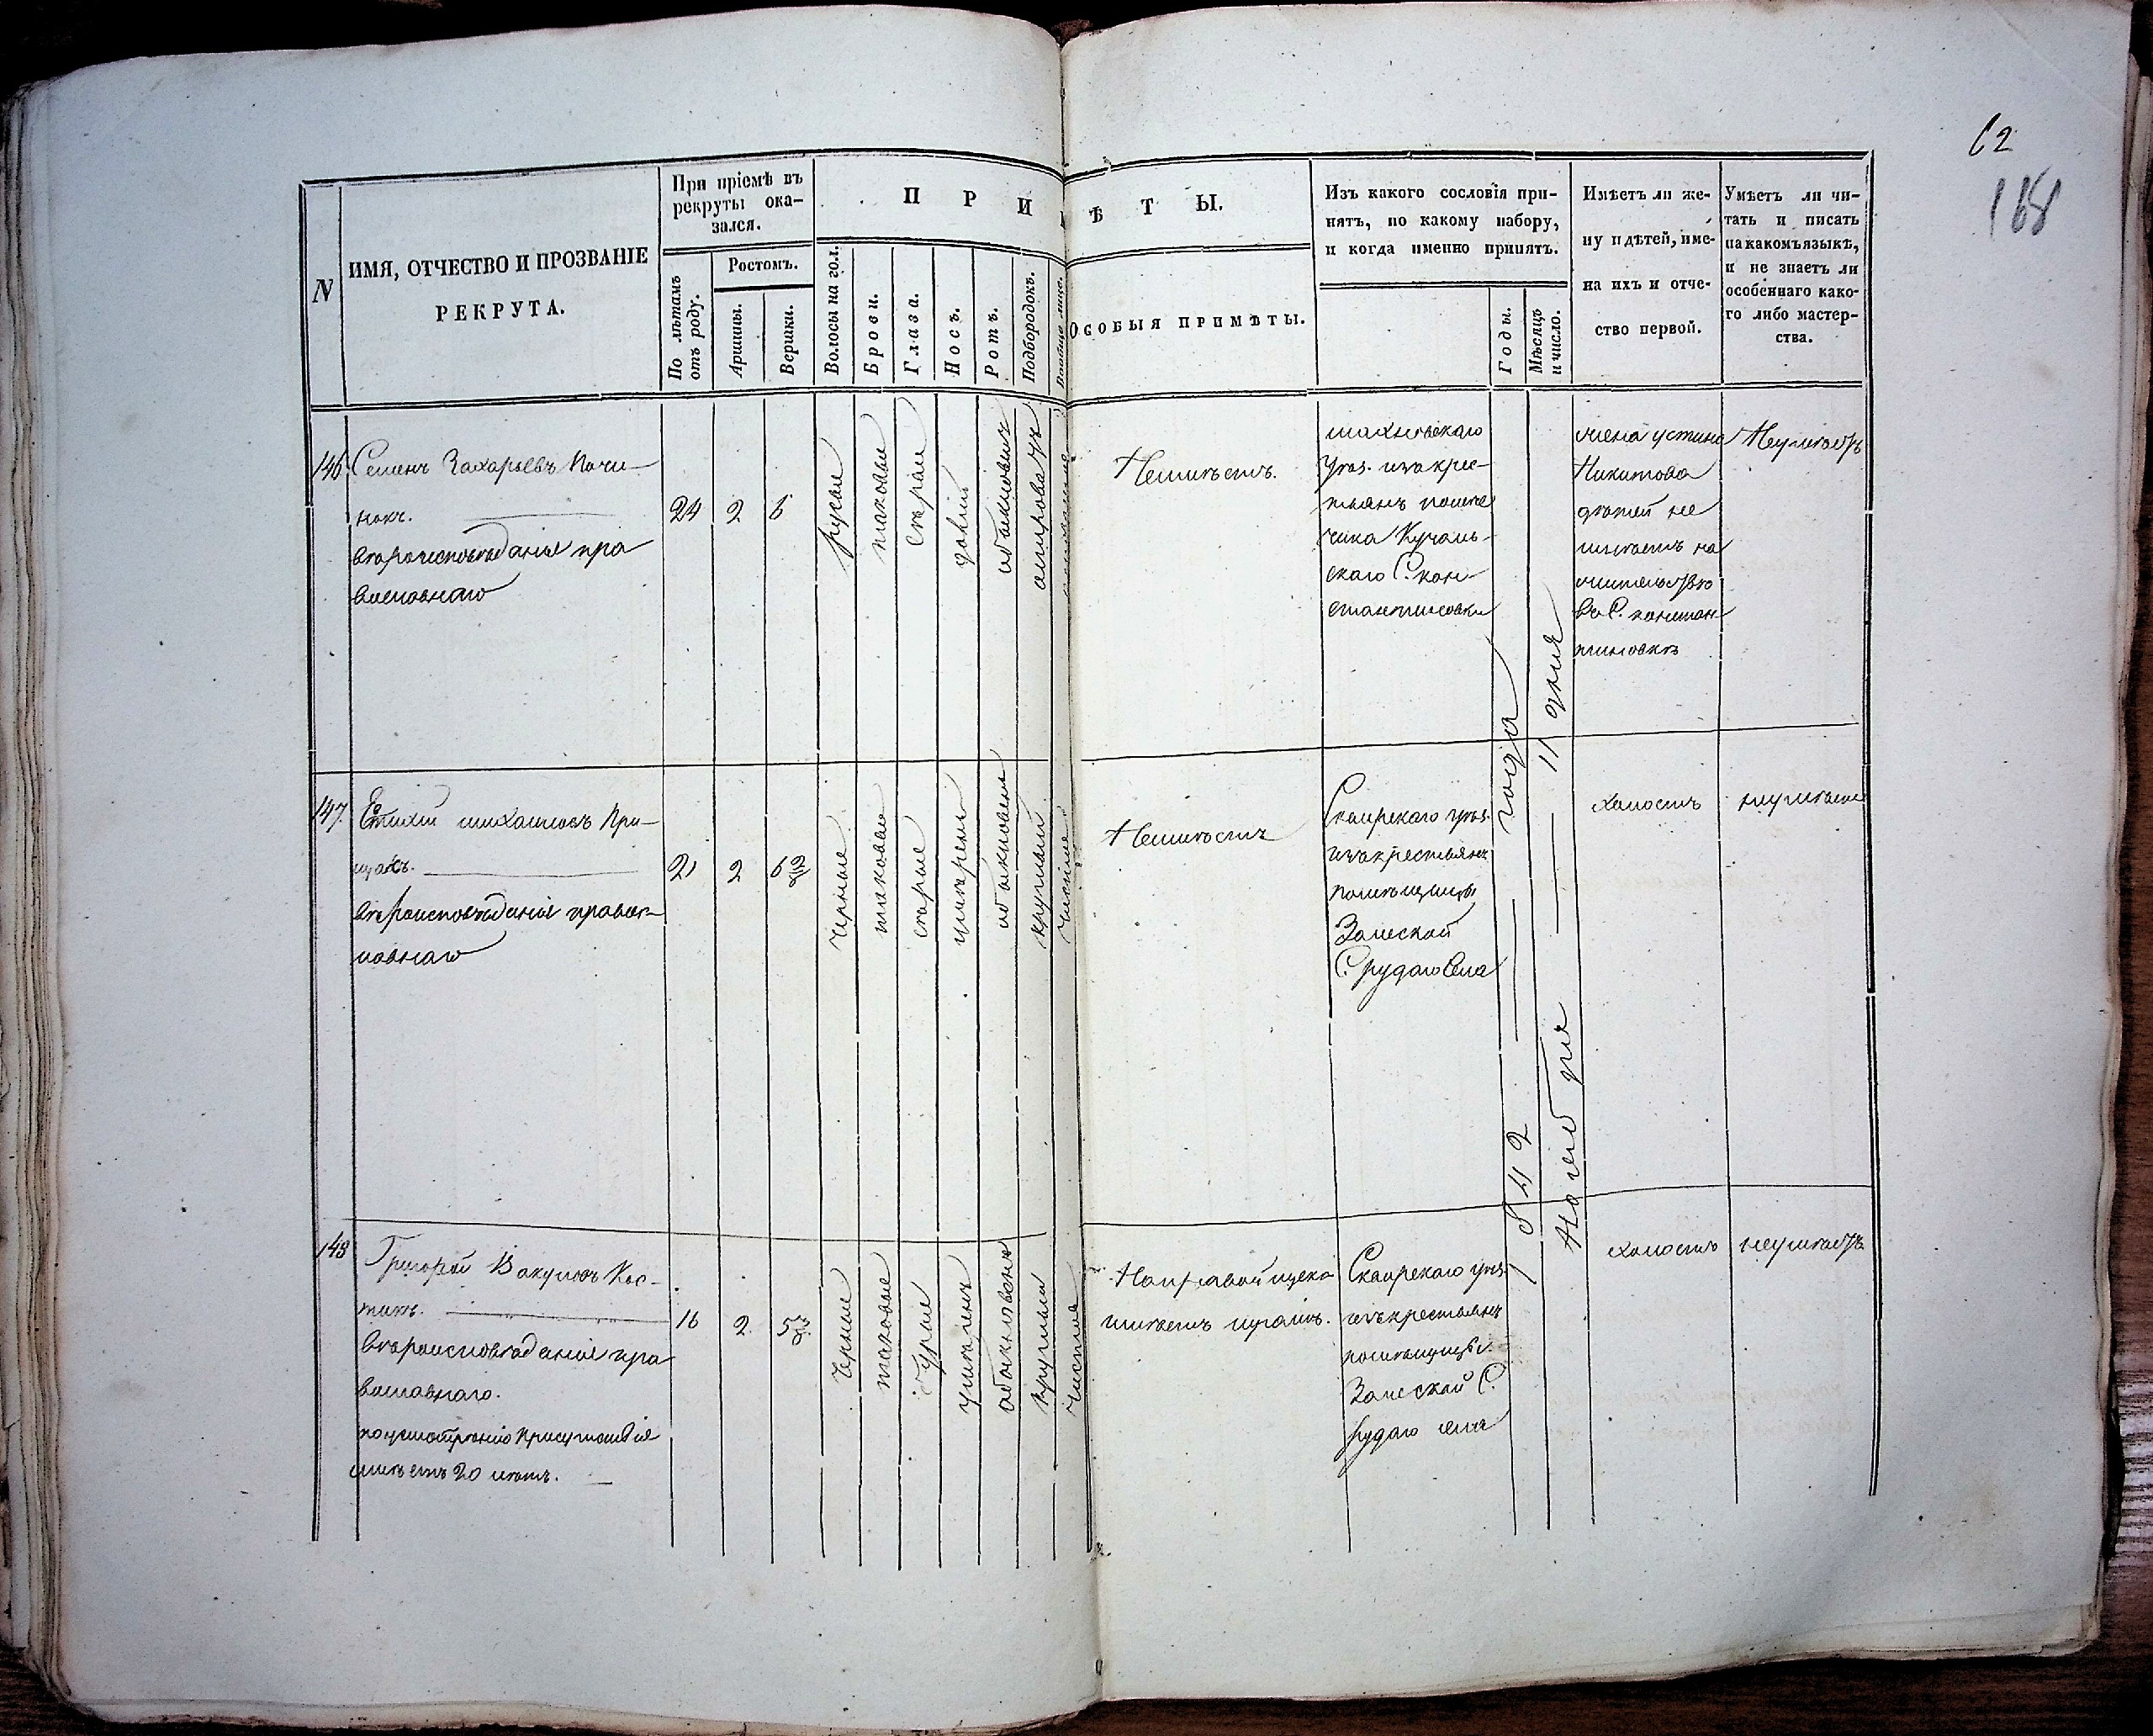 62
168
N
ИМЯ, ОТЧЕСТВО И ПРОЗВАНІЕ
РЕКРУТА.
При пріемѣ въ
рекруты ока-
зался.
По лѣтамъ
отъ роду.
Ростомъ.
Аршины.
Вершки.
ПРИМѢТЫ.
Волосы на гол.
Брови.
Глаза.
Носъ.
Ротъ.
Подбородокъ.
Вообще лице.
ОСОБЫЯ ПРИМѢТЫ.
Изъ какого сословія при-
нятъ, по какому набору,
и когда именно принятъ.
Годы.
Мѣсяцъ
и число.
Имѣетъ ли же-
ну и дѣтей, име-
на ихъ и отче-
ство первой.
Умѣетъ ли чи-
тать и писать
на какомъ языкѣ,
и не знаетъ ли
особеннаго како-
го либо мастер-
ства.
146
Семенъ Захарьевъ Почи-
нокъ.
вѣроисповѣданія пра
вославнаго
24
2
6
русые
таковые
сѣрые
Неимѣетъ.
уѣз. изъ крес-
тьянъ помѣ
щика
скаго С. кон-
стантиновки
жена устина
Никитова
дѣтей не
имѣетъ на
жительство
въ С. констан
тиновкѣ
Неумѣетъ
147.
Евтихій михайловъ При-
щакъ.
вѣроисповѣданія правос-
лавнаго
21
2
6 2/8
черные
таковые
сѣрые
умѣрены
обыкновены
круглый
чистое
Неимѣетъ
Сквирскаго уѣз.
изъ крестьянъ
помѣщицы
Залеской
С. рудаго Села
холостъ
неумѣетъ
148
Григорій Вакуловъ Кос-
тикъ.
вѣроисповѣданія пра
вославнаго.
поусмотрѣнію присутствія
имѣетъ 20 лѣтъ.
16
2
5 3/8
черные
таковые
бурые
умѣренъ
обыкновенъ
круглый
чистое
На правой щеке
имѣетъ шрамъ.
Сквирскаго уѣз.
изъ крестьянъ
помѣщицы
Залеской С.
рудаго села
холостъ
неумѣетъ
1842 года
Ноября 11 дня